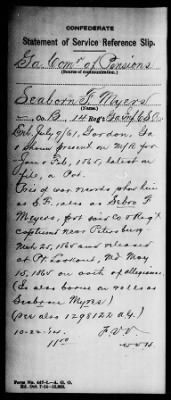 CONFEDERATE
Statement of Service Reference Slip.
Ga. Comr of Pensions
(Source of communication.)
Seaborn F. Myers
(Name.)
Co. B. 14 Reg't Ga Inf C.S.
Enl. July 9/61, Gordon, Ga
& shown present on M/R for
Jan & Feb, 1865, latest on
file, a Pvt.
Pris of war records show him
as S. F. also as Sebro F
Meyers, for said Co & Regt
captured near Petersburg
Mch 25, 1865 and released
at Pt Lookout, Md May
15, 1865 on oath of allegiance.
(Is also borne on rolls as
Seaborn Myres)
(See also 1298122 a.g.)
10-22-14.
1150
Form No. 447-1—A. G. O.
Ed. Oct. 7-14—10,000.